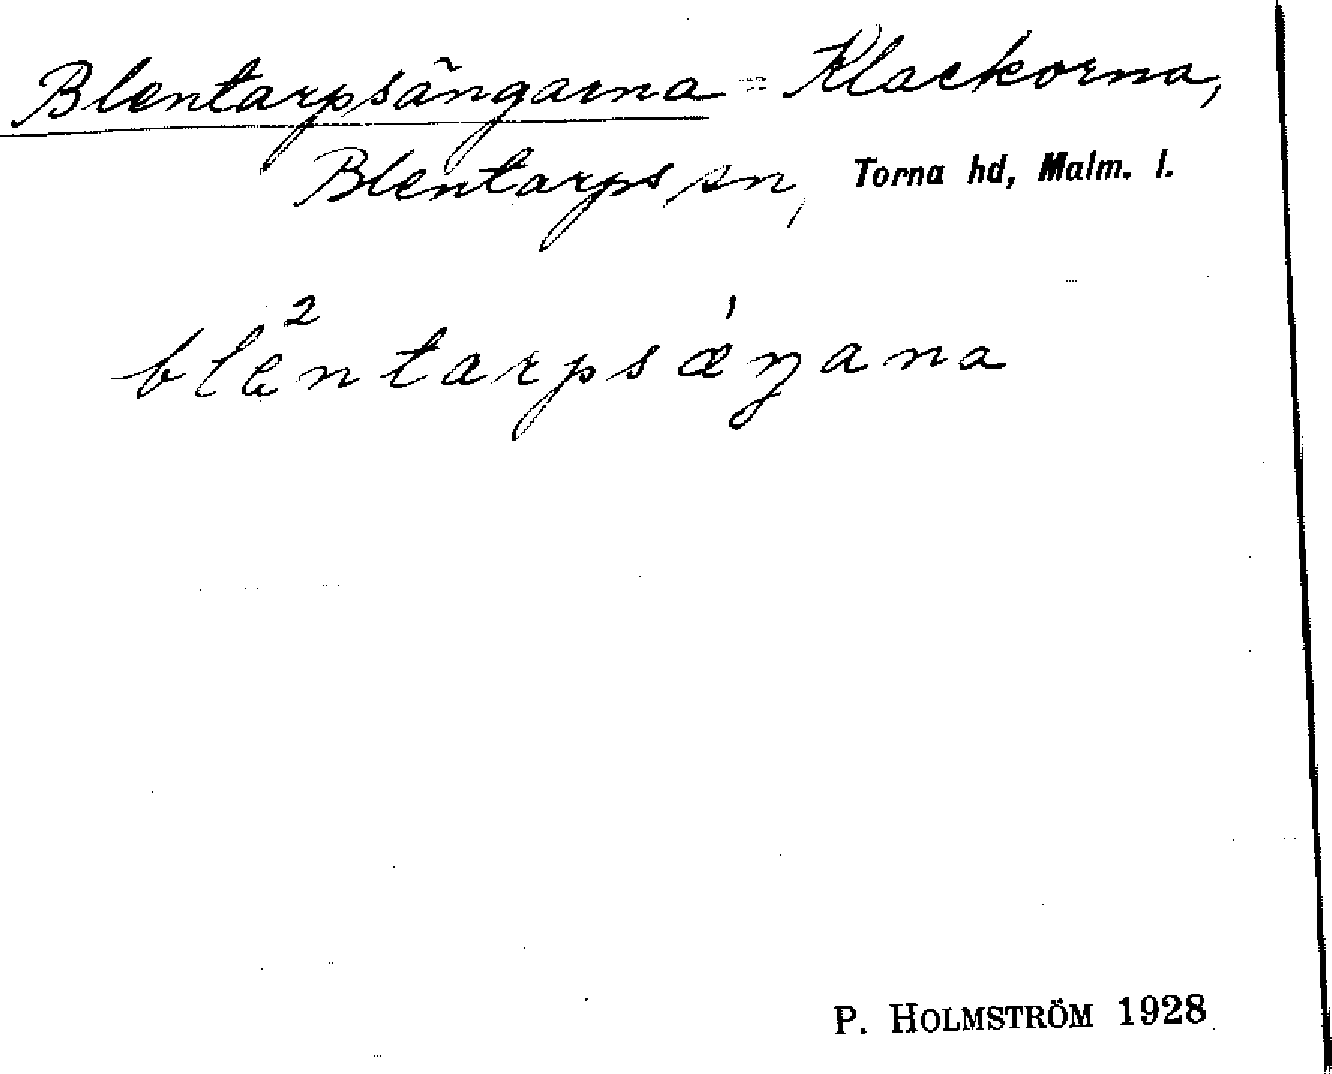 Blentarpsängarna = Klackorna,
Blentarps sn, Torna hd, Malm. l.
blæ²ntarpsæ̍ŋana
P. HOLMSTRÖM 1928